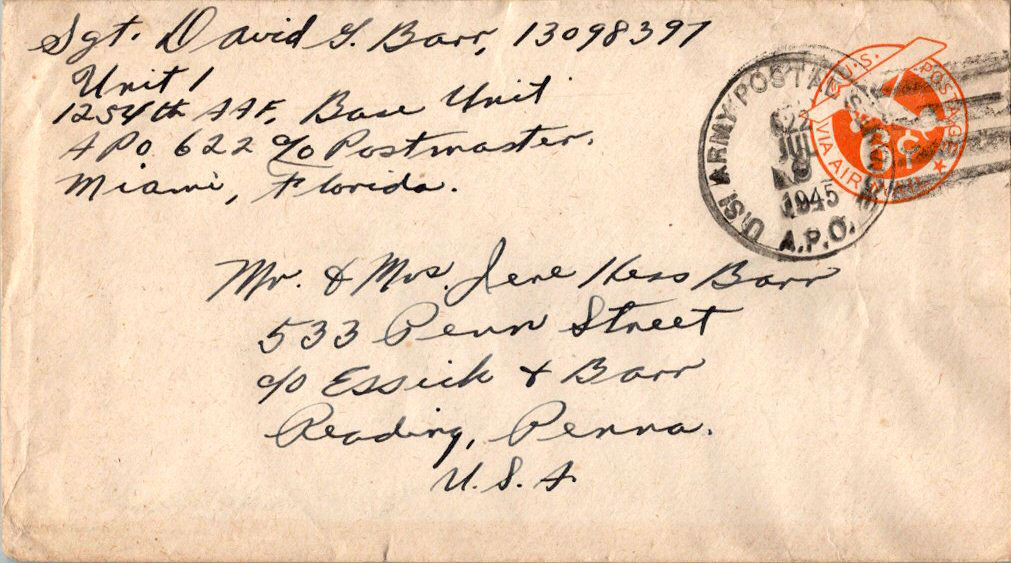 Sgt. David G. Barr, 13098397
Unit 1
1254th AAF, Base Unit
APO 622 c/o Postmaster.
Miami, Florida.
U.S. POSTAGE
6¢
VIA AIR MAIL
U.S. ARMY POSTAL SERVICE
622
JUL
1945
A.P.O.
Mr. & Mrs. Jere Hess Barr
533 Penn Street
c/o Essick & Barr
Reading, Penna.
U.S.A